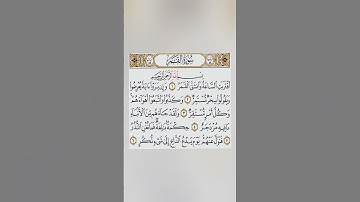 سُورَةُ القَمَرِ
بِسْمِ اللَّهِ الرَّحْمَٰنِ الرَّحِيمِ
ٱقْتَرَبَتِ ٱلسَّاعَةُ وَٱنشَقَّ ٱلْقَمَرُ ١ وَإِن يَرَوْا۟ ءَايَةً يُعْرِضُوا۟
وَيَقُولُوا۟ سِحْرٌ مُّسْتَمِرٌّ ٢ وَكَذَّبُوا۟ وَٱتَّبَعُوٓا۟ أَهْوَآءَهُمْ
وَكُلُّ أَمْرٍ مُّسْتَقِرٌّ ٣ وَلَقَدْ جَآءَهُم مِّنَ ٱلْأَنۢبَآءِ
مَا فِيهِ مُزْدَجَرٌ ٤ حِكْمَةٌۢ بَٰلِغَةٌ فَمَا تُغْنِ ٱلنُّذُرُ
٥ فَتَوَلَّ عَنْهُمْ يَوْمَ يَدْعُ ٱلدَّاعِ إِلَىٰ شَىْءٍ نُّكُرٍ ٦